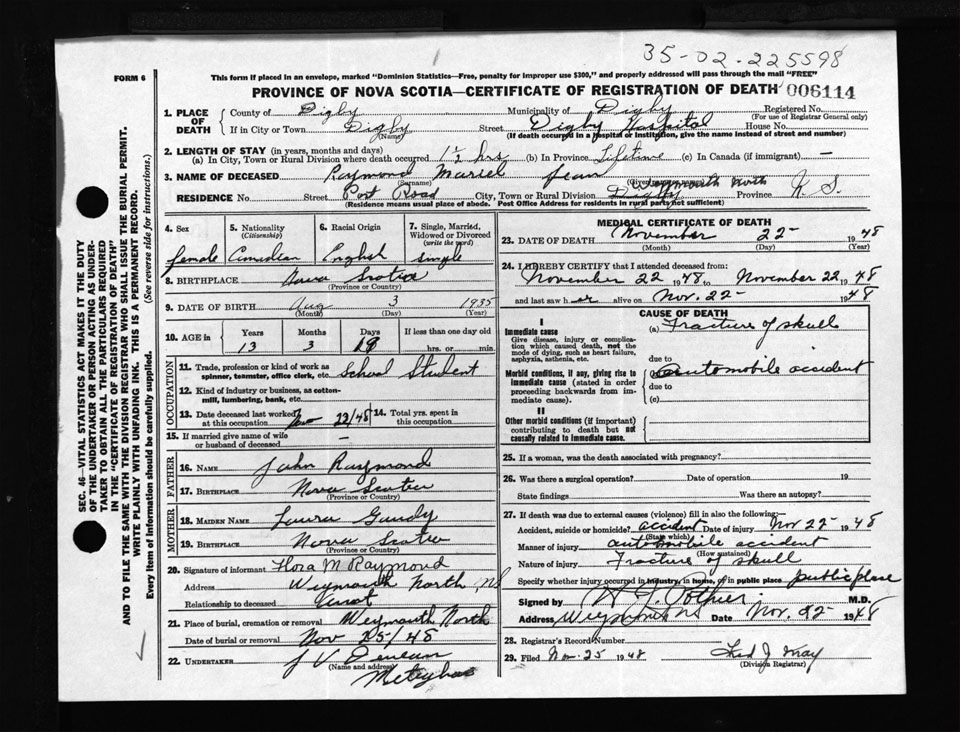 35-02-225598
FORM 6
This form if placed in an envelope, marked "Dominion Statistics—Free, penalty for improper use $300," and properly addressed will pass through the mail "FREE"
PROVINCE OF NOVA SCOTIA—CERTIFICATE OF REGISTRATION OF DEATH 006114
1. PLACE OF DEATH
County of Digby Municipality of Digby Registered No.
(For use of Registrar General only)
If in City or Town Digby Street Digby Hospital House No.
(Name) (If death occurred in a hospital or institution, give the name instead of street and number)
2. LENGTH OF STAY (in years, months and days)
(a) In City, Town or Rural Division where death occurred 1½ hrs (b) In Province Lifetime (c) In Canada (if immigrant) —
3. NAME OF DECEASED Raymond Muriel Jean
(Surname)
RESIDENCE No. Street Post Road City, Town or Rural Division Weymouth North Digby Province N. S.
(Residence means usual place of abode. Post Office Address for residents in rural parts not sufficient)
SEC. 46—VITAL STATISTICS ACT MAKES IT THE DUTY
OF THE UNDERTAKER OR PERSON ACTING AS UNDER-
TAKER TO OBTAIN ALL THE PARTICULARS REQUIRED
IN THE "CERTIFICATE OF REGISTRATION OF DEATH"
AND TO FILE THE SAME WITH THE DIVISION REGISTRAR WHO SHALL ISSUE THE BURIAL PERMIT.
WRITE PLAINLY WITH UNFADING INK. THIS IS A PERMANENT RECORD.
Every item of information should be carefully supplied. (See reverse side for instructions.)
4. Sex 5. Nationality (Citizenship) 6. Racial Origin 7. Single, Married, Widowed or Divorced (write the word)
female Canadian English single
8. BIRTHPLACE Nova Scotia
(Province or Country)
9. DATE OF BIRTH Aug 3 1935
(Month) (Day) (Year)
10. AGE in Years Months Days If less than one day old
13 3 19 hrs. or min.
OCCUPATION
11. Trade, profession or kind of work as spinner, teamster, office clerk, etc. School Student
12. Kind of industry or business, as cotton-mill, lumbering, bank, etc.
13. Date deceased last worked at this occupation Nov 22/48 14. Total yrs. spent in this occupation
15. If married give name of wife or husband of deceased —
FATHER
16. NAME John Raymond
17. BIRTHPLACE Nova Scotia
(Province or Country)
MOTHER
18. MAIDEN NAME Laura Gundy
19. BIRTHPLACE Nova Scotia
(Province or Country)
20. Signature of informant Flora M Raymond
Address Weymouth North, NS
Relationship to deceased Aunt
21. Place of burial, cremation or removal Weymouth North
Date of burial or removal Nov 25/48
22. UNDERTAKER J V
(Name and address)
Meteghan
MEDICAL CERTIFICATE OF DEATH
23. DATE OF DEATH November 22 1948
(Month) (Day) (Year)
24. I HEREBY CERTIFY that I attended deceased from:
November 22 1948 to November 22 1948
and last saw her alive on Nov. 22 1948
CAUSE OF DEATH
I
Immediate cause
Give disease, injury or complication which caused death, not the mode of dying, such as heart failure, asphyxia, asthenia, etc.
(a) Fracture of skull
due to
Morbid conditions, if any, giving rise to immediate cause (stated in order proceeding backwards from immediate cause).
(b) automobile accident
due to
(c)
II
Other morbid conditions (if important) contributing to death but not causally related to immediate cause.
25. If a woman, was the death associated with pregnancy?
26. Was there a surgical operation? Date of operation 19
State findings Was there an autopsy?
27. If death was due to external causes (violence) fill in also the following:
Accident, suicide or homicide? accident Date of injury Nov 22 1948
(State which)
Manner of injury automobile accident
(How sustained)
Nature of injury Fracture of skull
Specify whether injury occurred in industry, in home, or in public place public place
Signed by W. J. Pothier M.D.
Address Weymouth NS Date Nov. 22 1948
28. Registrar's Record Number
29. Filed Nov. 25 1948 Fred J May
(Division Registrar)